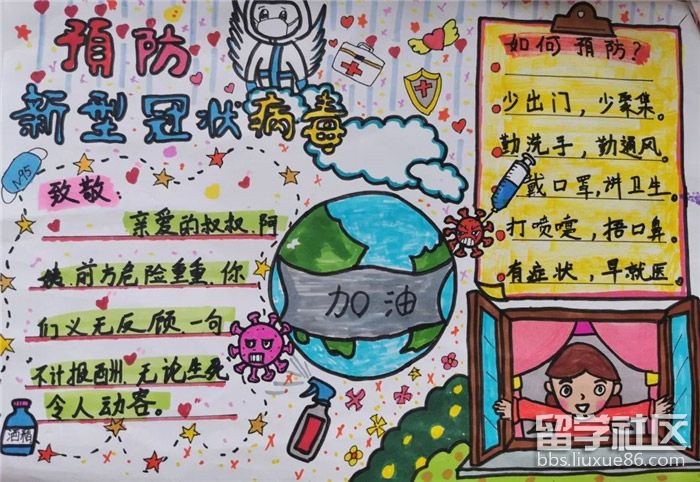 预防
新型冠状病毒
N95
致敬:
亲爱的叔叔.阿
姨,前方危险重重.你
们义无反顾,一句
不计报酒州.无论生死
令人动容。
酒精
加油
如何预防?
少出门,少聚集。
勤洗手,勤通风。
戴口罩,讲卫生。
打喷嚏,捂口鼻。
有症状,早就医。
留学社区
bbs.liuxue86.com